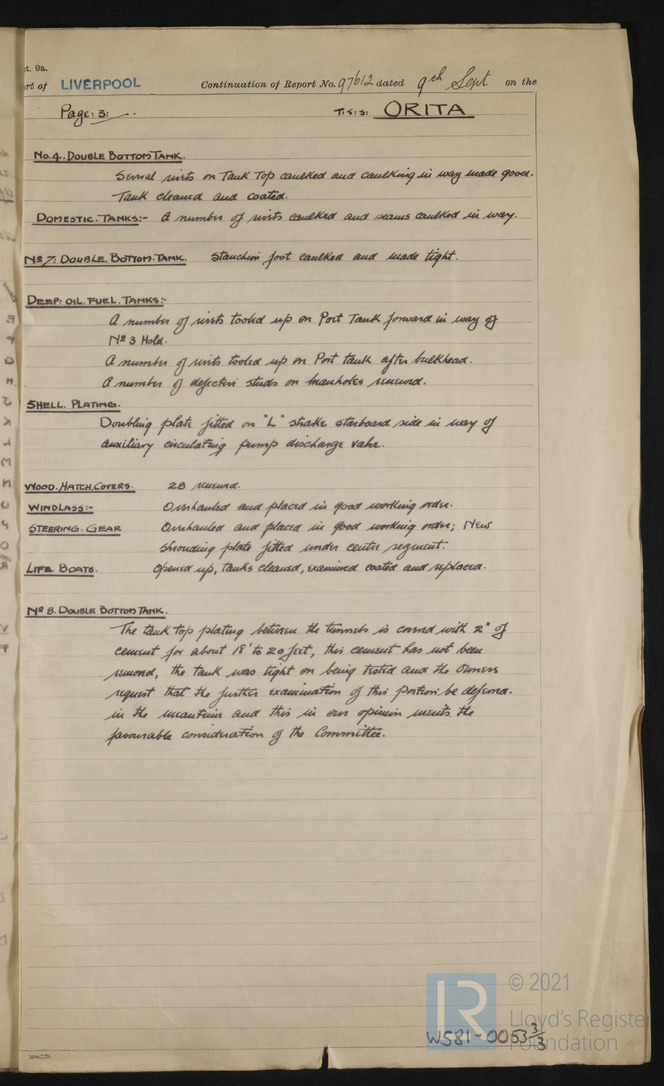 t. 9a.
rt of LIVERPOOL Continuation of Report No. 97612 dated 9th Sept. on the
Page: 3: T.S.S: ORITA
No. 4. DOUBLE BOTTOM TANK.
Several rivets on Tank Top caulked and caulking in way made good.
Tank cleaned and coated.
DOMESTIC. TANKS:- A number of rivets caulked and seams caulked in way.
No 7. DOUBLE. BOTTOM. TANK. Stanchion foot caulked and made tight.
DEEP: OIL. FUEL. TANKS:-
A number of rivets tooled up on Port Tank forward in way of
No 3 Hold.
A number of rivets tooled up on Port tank after bulkhead.
A number of defective studs on manholes renewed.
SHELL. PLATING.
Doubling plate fitted on "L" strake starboard side in way of
auxiliary circulating pump discharge valve.
WOOD. HATCH. COVERS. 28 renewed.
WINDLASS:- Overhauled and placed in good working order.
STEERING. GEAR Overhauled and placed in good working order; New
shrouding plate fitted under centre segment.
LIFE BOATS. Opened up, tanks cleaned, examined coated and replaced.
No 8. DOUBLE BOTTOM TANK.
The tank top plating between the tunnels is covered with 2" of
cement for about 18' to 20 feet, this cement has not been
removed, the tank was tight on being tested and the Owners
request that the further examination of this portion be deferred.
in the meantime and this in our opinion merits the
favourable consideration of the Committee.
© 2021
Lloyd's Register
Foundation
W581-0053 3/3